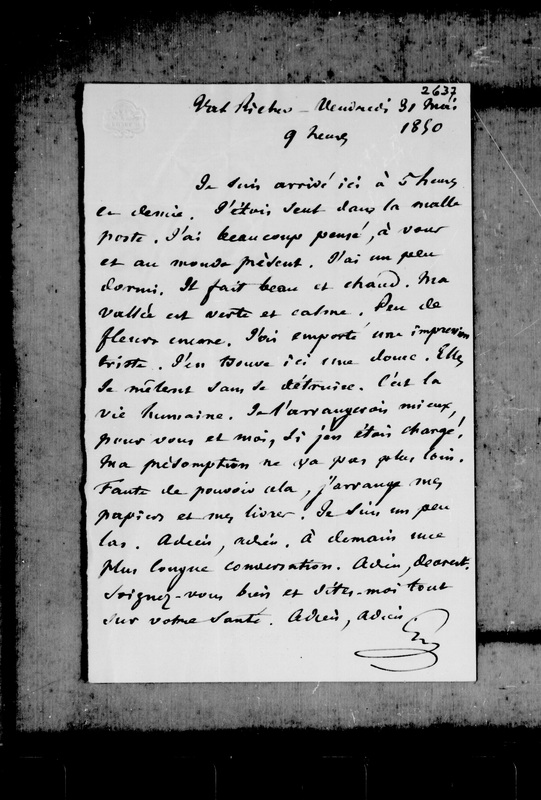 2637
Val Richer - Vendredi 31 Mai
9 heures 1850
Je suis arrivé ici à 5 heures
et demie. J'étois seul dans la malle
poste. J'ai beaucoup pensé, à vous
et au monde présent. J'ai un peu
dormi. Il fait beau et chaud. Ma
vallée est verte et calme. Peu de
fleurs encore. J'ois emporté une impression
triste. J'en trouve ici une douce. Elles
se mêlent sans se détruire. C'est la
vie humaine. Je l'arrangerois mieux,
pour vous et moi, si j'en étais chargé.
Ma présomption ne va pas plus loin.
Faute de pouvoir cela, j'arrange mes
papiers et mes livres. Je suis un peu
las. Adieu, adieu. à demain une
plus longue conversation. Adieu, dearest.
Soignez-vous bien et dites-moi tout
sur votre santé. Adieu, adieu